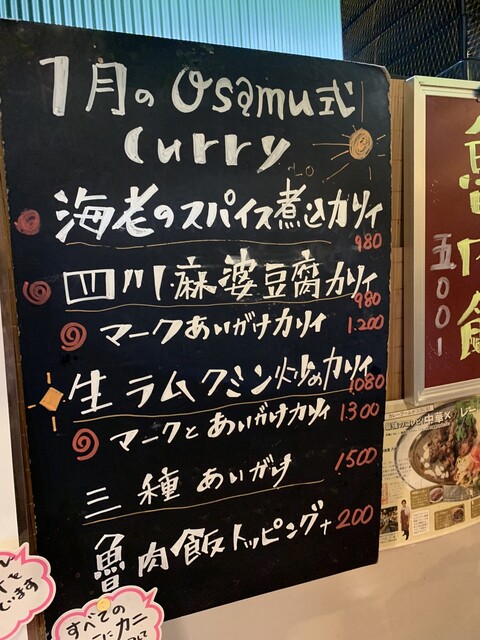 1月のOsamu式
curry
海老のスパイス煮込カリィ
980
四川麻婆豆腐カリィ
980
マークあいがけカリィ 1.200
生ラムクミン炒めカリィ
1080
マークとあいがけカリィ 1300
三種あいがけ 1500
魯肉飯トッピング+200
魯肉飯
五001
中華×
すべての
カニ